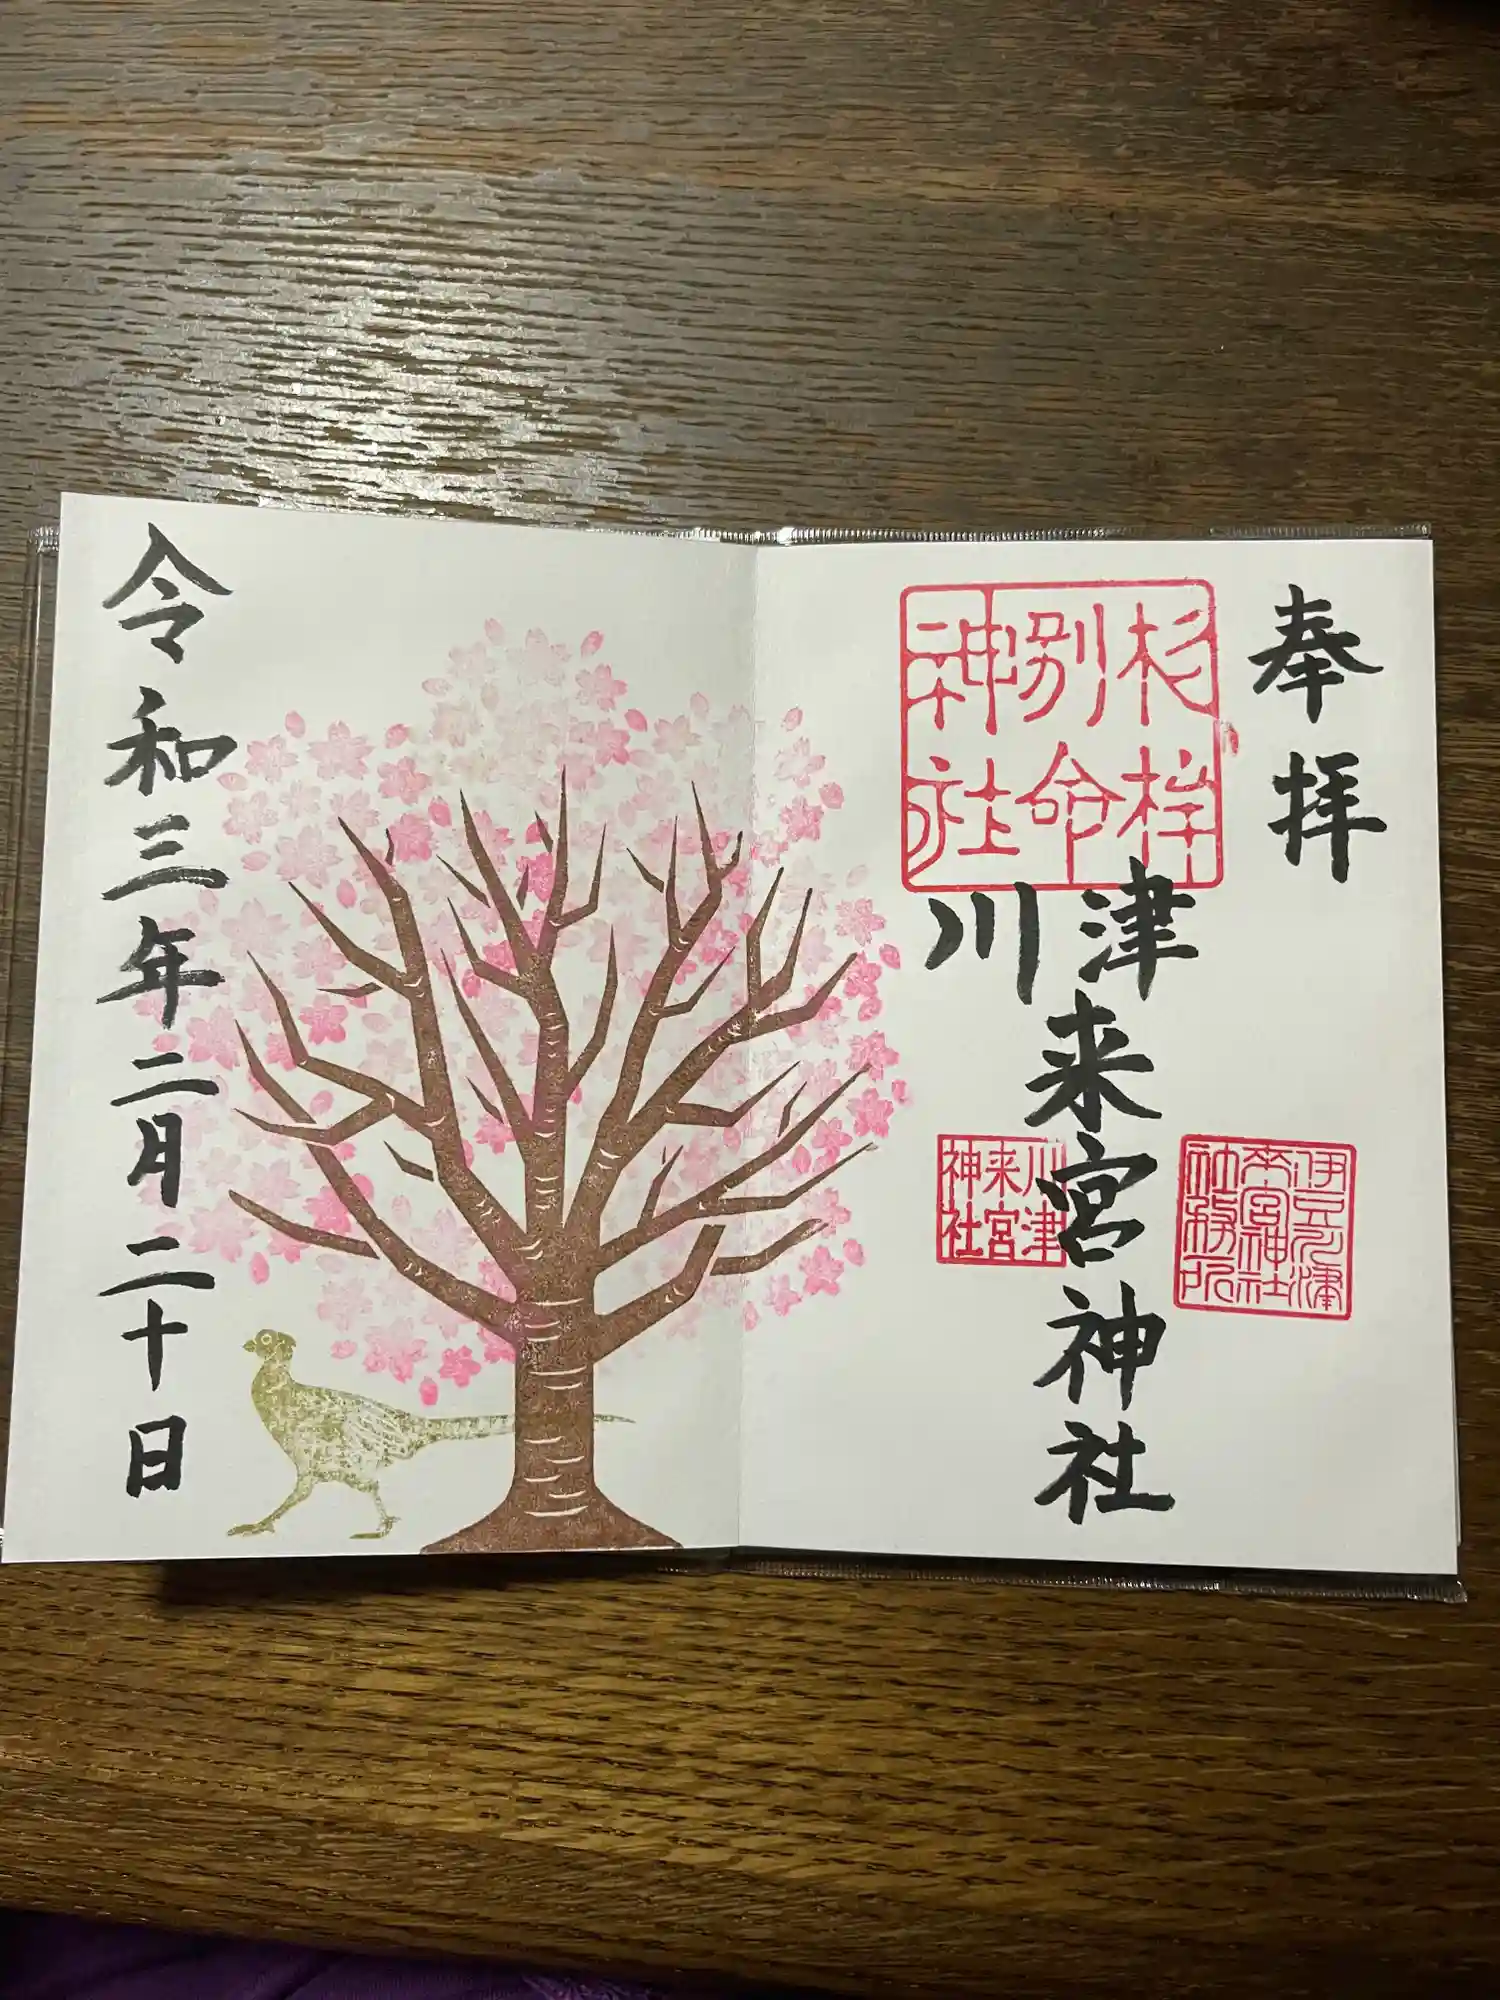 奉拝
杉桙
別命
神社
川津
来宮神社
伊豆川津
来宮神社
社務所
川津
来宮
神社
令和三年二月二十日